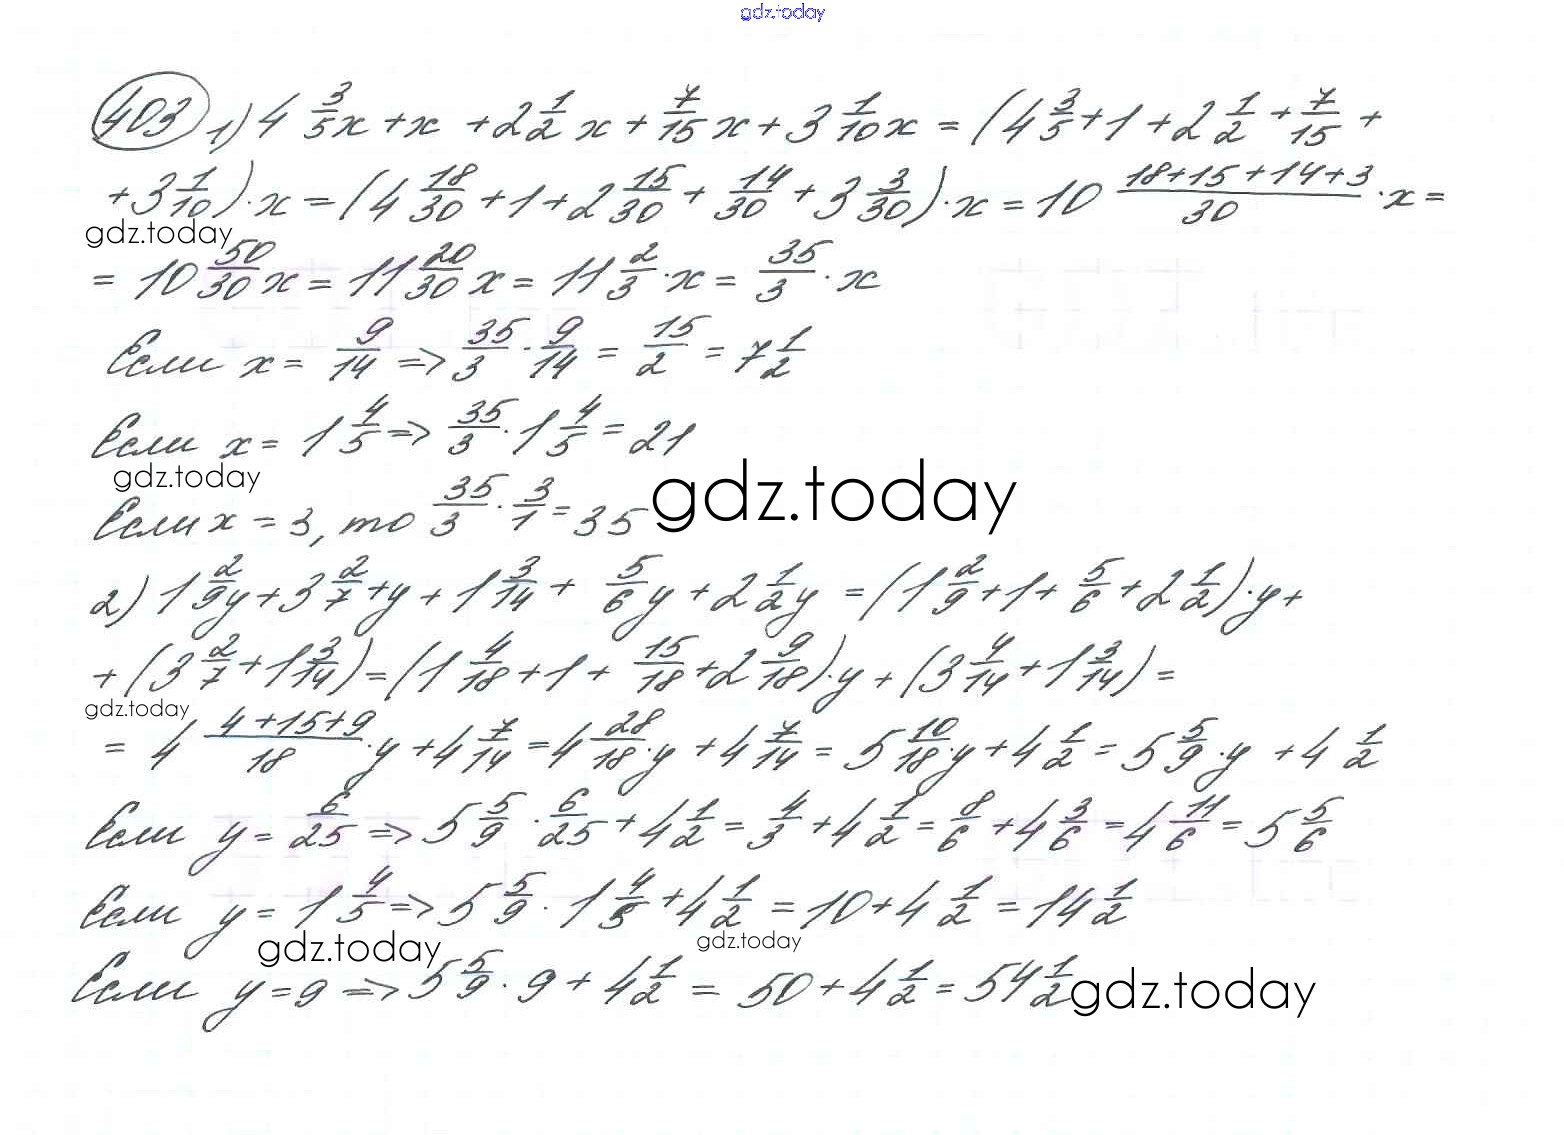 gdz.today
403 1) 4 3/5 x + x + 2 1/2 x + 7/15 x + 3 1/10 x = (4 3/5 + 1 + 2 1/2 + 7/15 +
+ 3 1/10) · x = (4 18/30 + 1 + 2 15/30 + 14/30 + 3 3/30) · x = 10 (18+15+14+3)/30 · x =
gdz.today
= 10 50/30 x = 11 20/30 x = 11 2/3 · x = 35/3 · x
Если x = 9/14 => 35/3 · 9/14 = 15/2 = 7 1/2
Если x = 1 4/5 => 35/3 · 1 4/5 = 21
gdz.today
gdz.today
Если x = 3, то 35/3 · 3/1 = 35
2) 1 2/9 y + 3 2/7 + y + 1 3/14 + 5/6 y + 2 1/2 y = (1 2/9 + 1 + 5/6 + 2 1/2) · y +
+ (3 2/7 + 1 3/14) = (1 4/18 + 1 + 15/18 + 2 9/18) · y + (3 4/14 + 1 3/14) =
gdz.today
= 4 (4+15+9)/18 · y + 4 7/14 = 4 28/18 · y + 4 7/14 = 5 10/18 · y + 4 1/2 = 5 5/9 · y + 4 1/2
Если y = 6/25 => 5 5/9 · 6/25 + 4 1/2 = 4/3 + 4 1/2 = 8/6 + 4 3/6 = 4 11/6 = 5 5/6
Если y = 1 4/5 => 5 5/9 · 1 4/5 + 4 1/2 = 10 + 4 1/2 = 14 1/2
gdz.today
gdz.today
Если y = 9 => 5 5/9 · 9 + 4 1/2 = 50 + 4 1/2 = 54 1/2
gdz.today